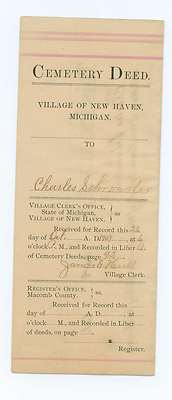 CEMETERY DEED.
VILLAGE OF NEW HAVEN,
MICHIGAN.
TO
Charles
VILLAGE CLERK'S OFFICE,
State of Michigan, ss.
VILLAGE OF NEW HAVEN.
Received for Record this 26
day of Oct. A. D. at
o'clock P. M., and Recorded in Liber
of Cemetery Deeds, page
James
Village Clerk.
REGISTER'S OFFICE, ss.
Macomb County.
Received for Record this
day of A. D. at
o'clock M., and Recorded in Liber
of deeds, on page
Register.